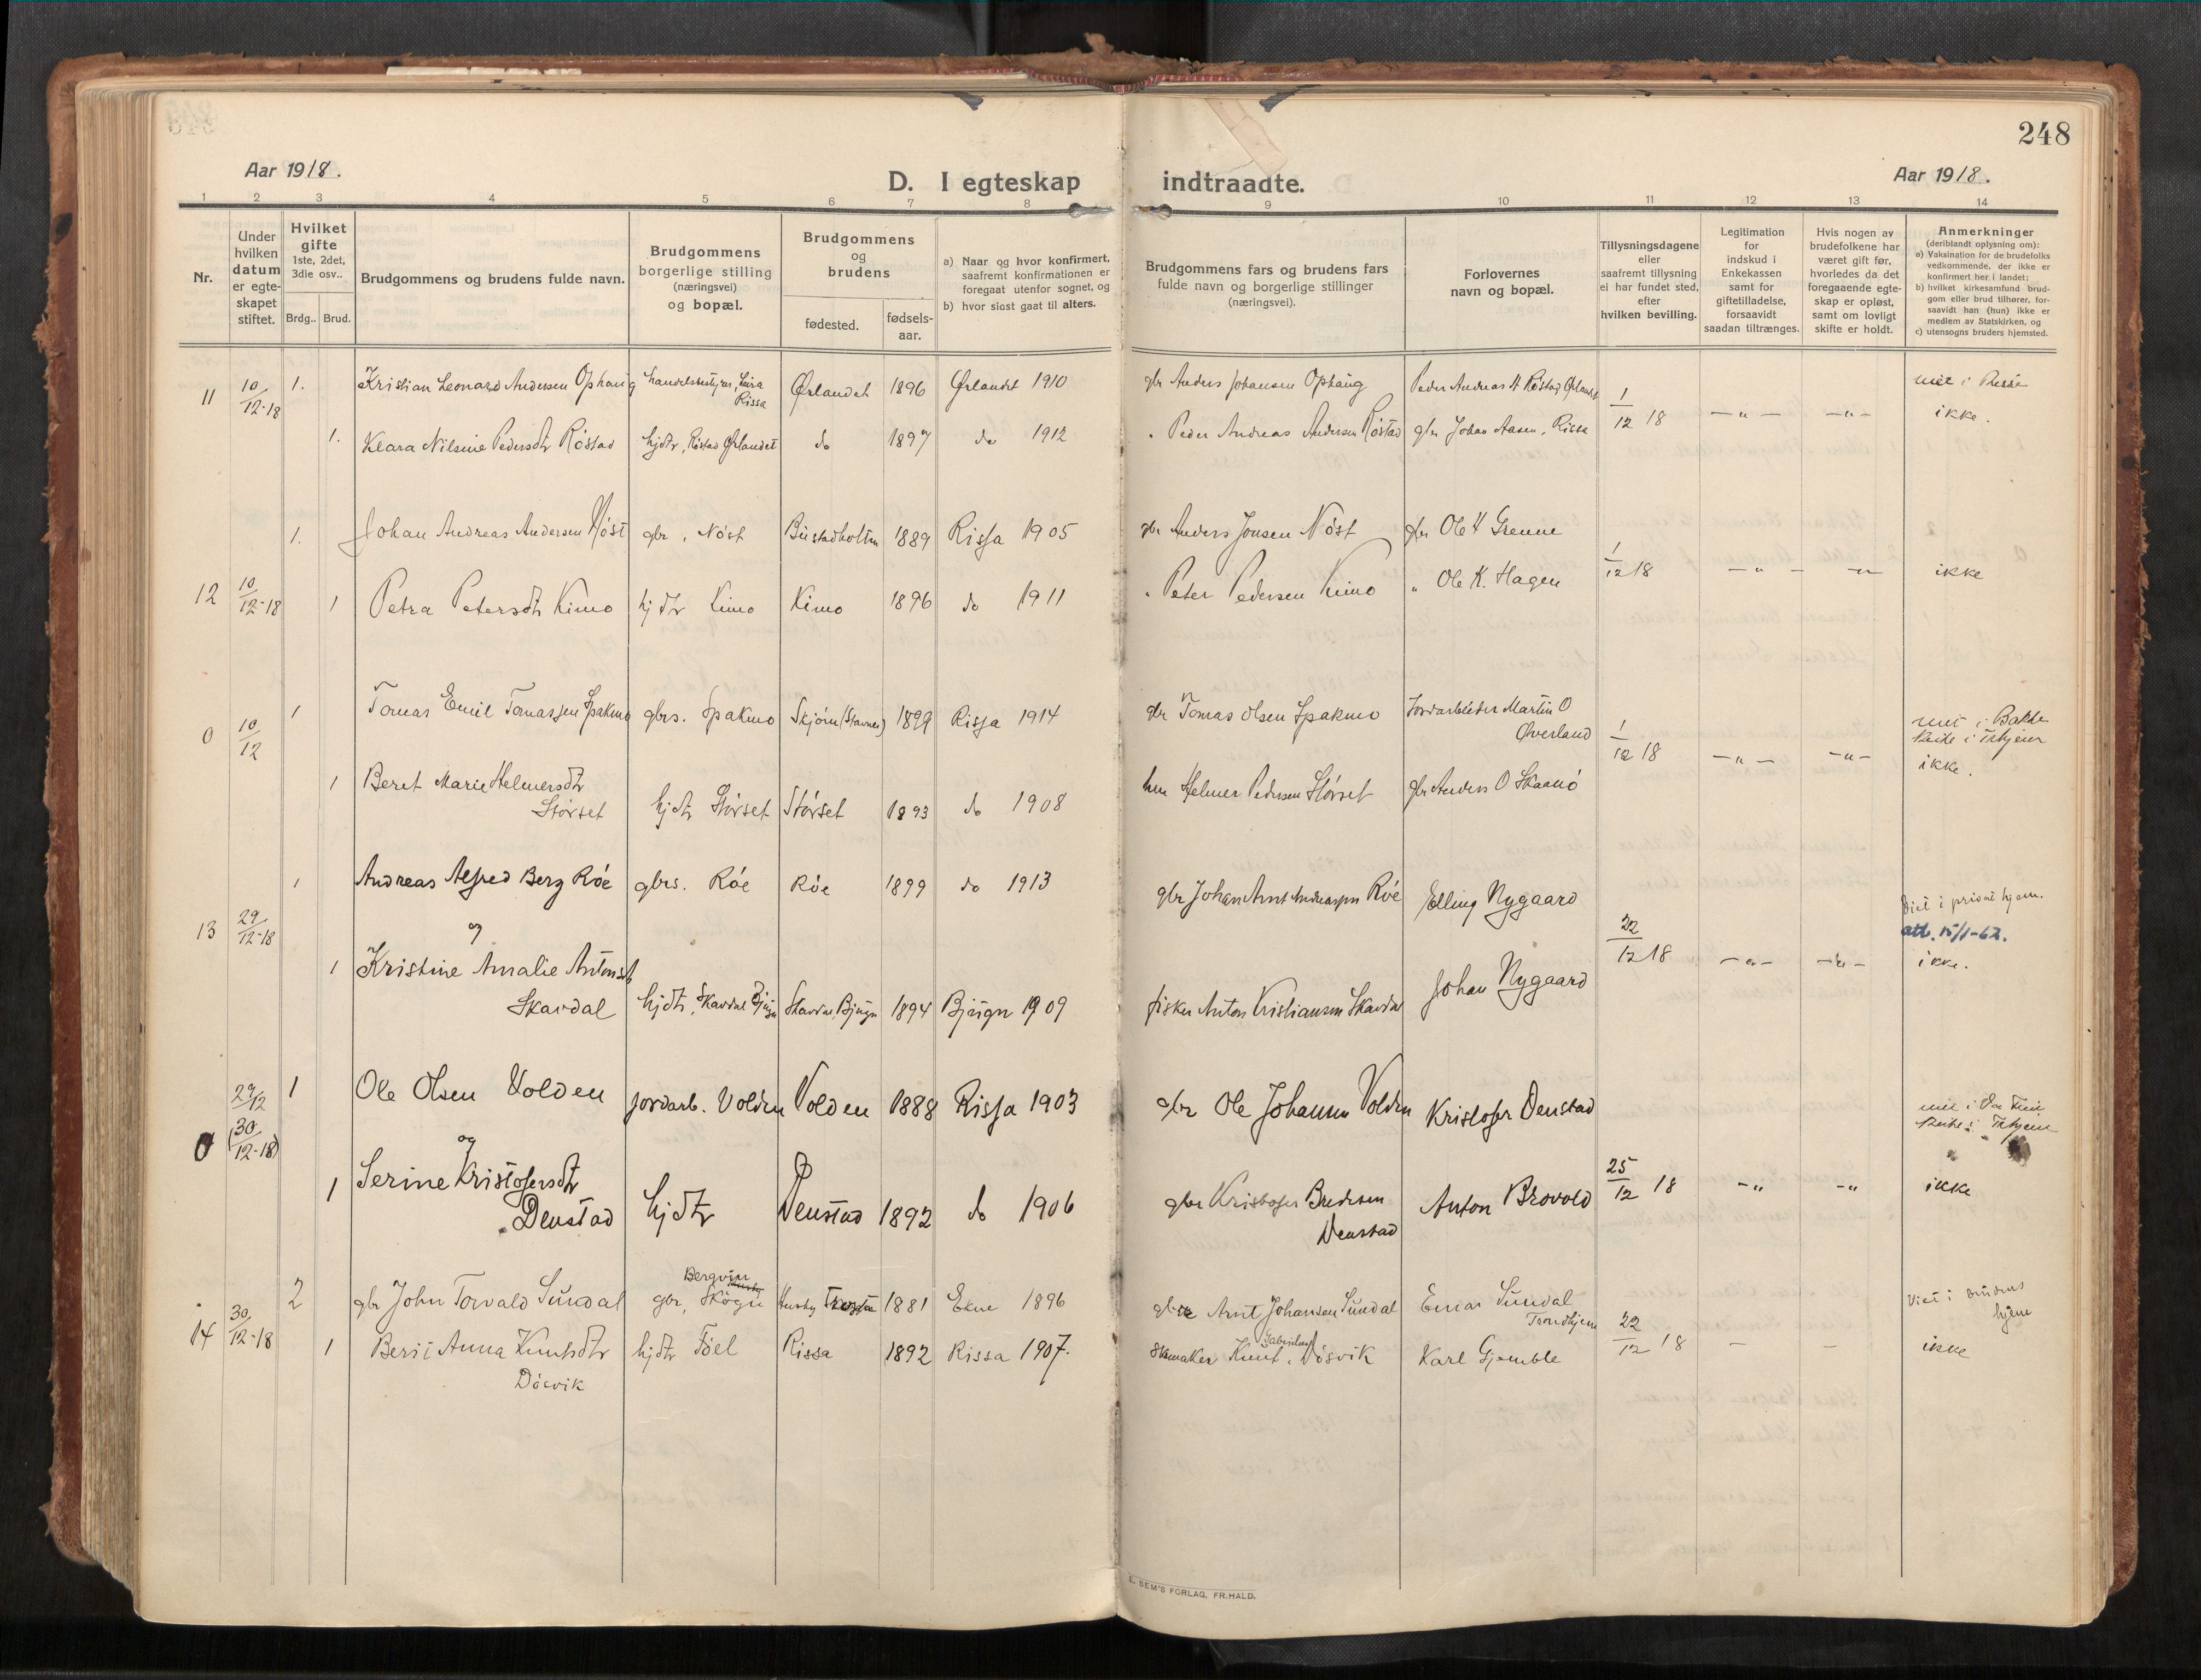 248
Aar 1918.
D. I egteskap indtraadte.
Aar 1918.
1 2 3 4 5 6 7 8 9 10 11 12 13 14
Nr.
Under hvilken datum er egte-skapet stiftet.
Hvilket gifte 1ste, 2det, 3die osv..
Brdg.. Brud.
Brudgommens og brudens fulde navn.
Brudgommens borgerlige stilling (næringsvei) og bopæl.
Brudgommens og brudens
fødested.
fødsels-aar.
a) Naar og hvor konfirmert, saafremt konfirmationen er foregaaet utenfor sognet, og
b) hvor sidst gaat til alters.
Brudgommens fars og brudens fars fulde navn og borgerlige stillinger (næringsvei).
Forlovernes navn og bopæl.
Tillysningsdagene eller saafremt tillysning ei har fundet sted, efter hvilken bevilling.
Legitimation for indskud i Enkekassen samt for giftetilladelse, forsaavidt saadan tiltrænges.
Hvis nogen av brudefolkene har været gift før, hvorledes da det foregaaende egte-skap er opløst, samt om lovligt skifte er holdt.
Anmerkninger (deriblandt oplysning om):
a) Vaksination for de brudefolks vedkommende, der ikke er konfirmert her i landet;
b) hvilket kirkesamfund brud-gom eller brud tilhører, for-saavidt han (hun) ikke er medlem av Statskirken, og
c) utensogns bruders hjemsted.
11 10/12-18 1. Kristian Leonard Andersen Ophaug handelsbestyrer, Leira Rissa Ørlandet 1896 Ørlandet 1910 gbr Anders Johansen Ophaug Peder Andreas A Røstad, Ørlandet 1/12 18 -"- -"- ikke.
1. Klara Nilsine Pedersdtr Røstad hjdtr, Røstad Ørlandet do 1897 do 1912 " Peder Andreas Andersen Røstad gbr Johan Aasen, Rissa
12 10/12-18 1. Johan Andreas Andersen Nøst gbr, Nøst 1889 Rissa 1905 gbr Anders Jonsen Nøst gbr Ole H Grenne 1/12 18 -"- -"- ikke
1 Petra Petersdtr Kimo hjdtr Kimo Kimo 1896 do 1911 " Peter Pedersen Kimo " Ole K. Hagen
0 10/12 1 Tomas Emil Tomassen Spakmo gbrs. Spakmo Skjørn (Stavnes) 1899 Rissa 1914 gbr Tomas Olsen Spakmo Jordarbeider Martin O Øverland 1/12 18 -"- -"- viet i Bakke Kirke i Trhjem ikke.
1 Beret Marie Helmersdtr Størset hjdtr Størset Størset 1893 do 1908 hm Helmer Pedersen Størset gbr Anders O Skaanø
13 29/12-18 1 Andreas Alfred Berg Røe gbrs. Røe Røe 1899 do 1913 gbr Johan Arnt Andreassen Røe Elling Nygaard 22/12 18 -"- -"- Viet i privat hjem. att. 15/1-62. ikke.
og
1 Kristine Amalie Antonsdtr Skavdal hjdtr, Skavdal Bjugn Skavdal, Bjugn 1894 Bjugn 1909 fisker Anton Kristiansen Skavdal Johan Nygaard
0 29/12 (30/12-18) 1 Ole Olsen Volden jordarb. Volden Volden 1888 Rissa 1903 gbr Ole Johansen Volden Kristofer Denstad 25/12 18 -" -" ikke
og
1 Serine Kristofersdtr Denstad hjdtr Denstad 1892 do 1906 gbr Kristofer Bredesen Denstad Anton Brovold
14 30/12-18 2 gbr John Torvald Sundal gbr, Skogn Bergvin 1881 Ekne 1896 gbr Arnt Johansen Sundal Einar Sundal Trondhjem 22/12 18 - - Viet i brudens hjem ikke
1 Berit Anna Knutsdtr Døsvik hjdtr Føel Rissa 1892 Rissa 1907. Skomaker Knut Gabrielsen Døsvik Karl Gjemble
E. SEM'S FORLAG, FR.HALD.